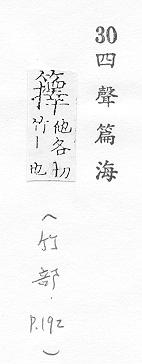 30四聲篇海
籜他各切
竹丨也
(竹部．P.192)